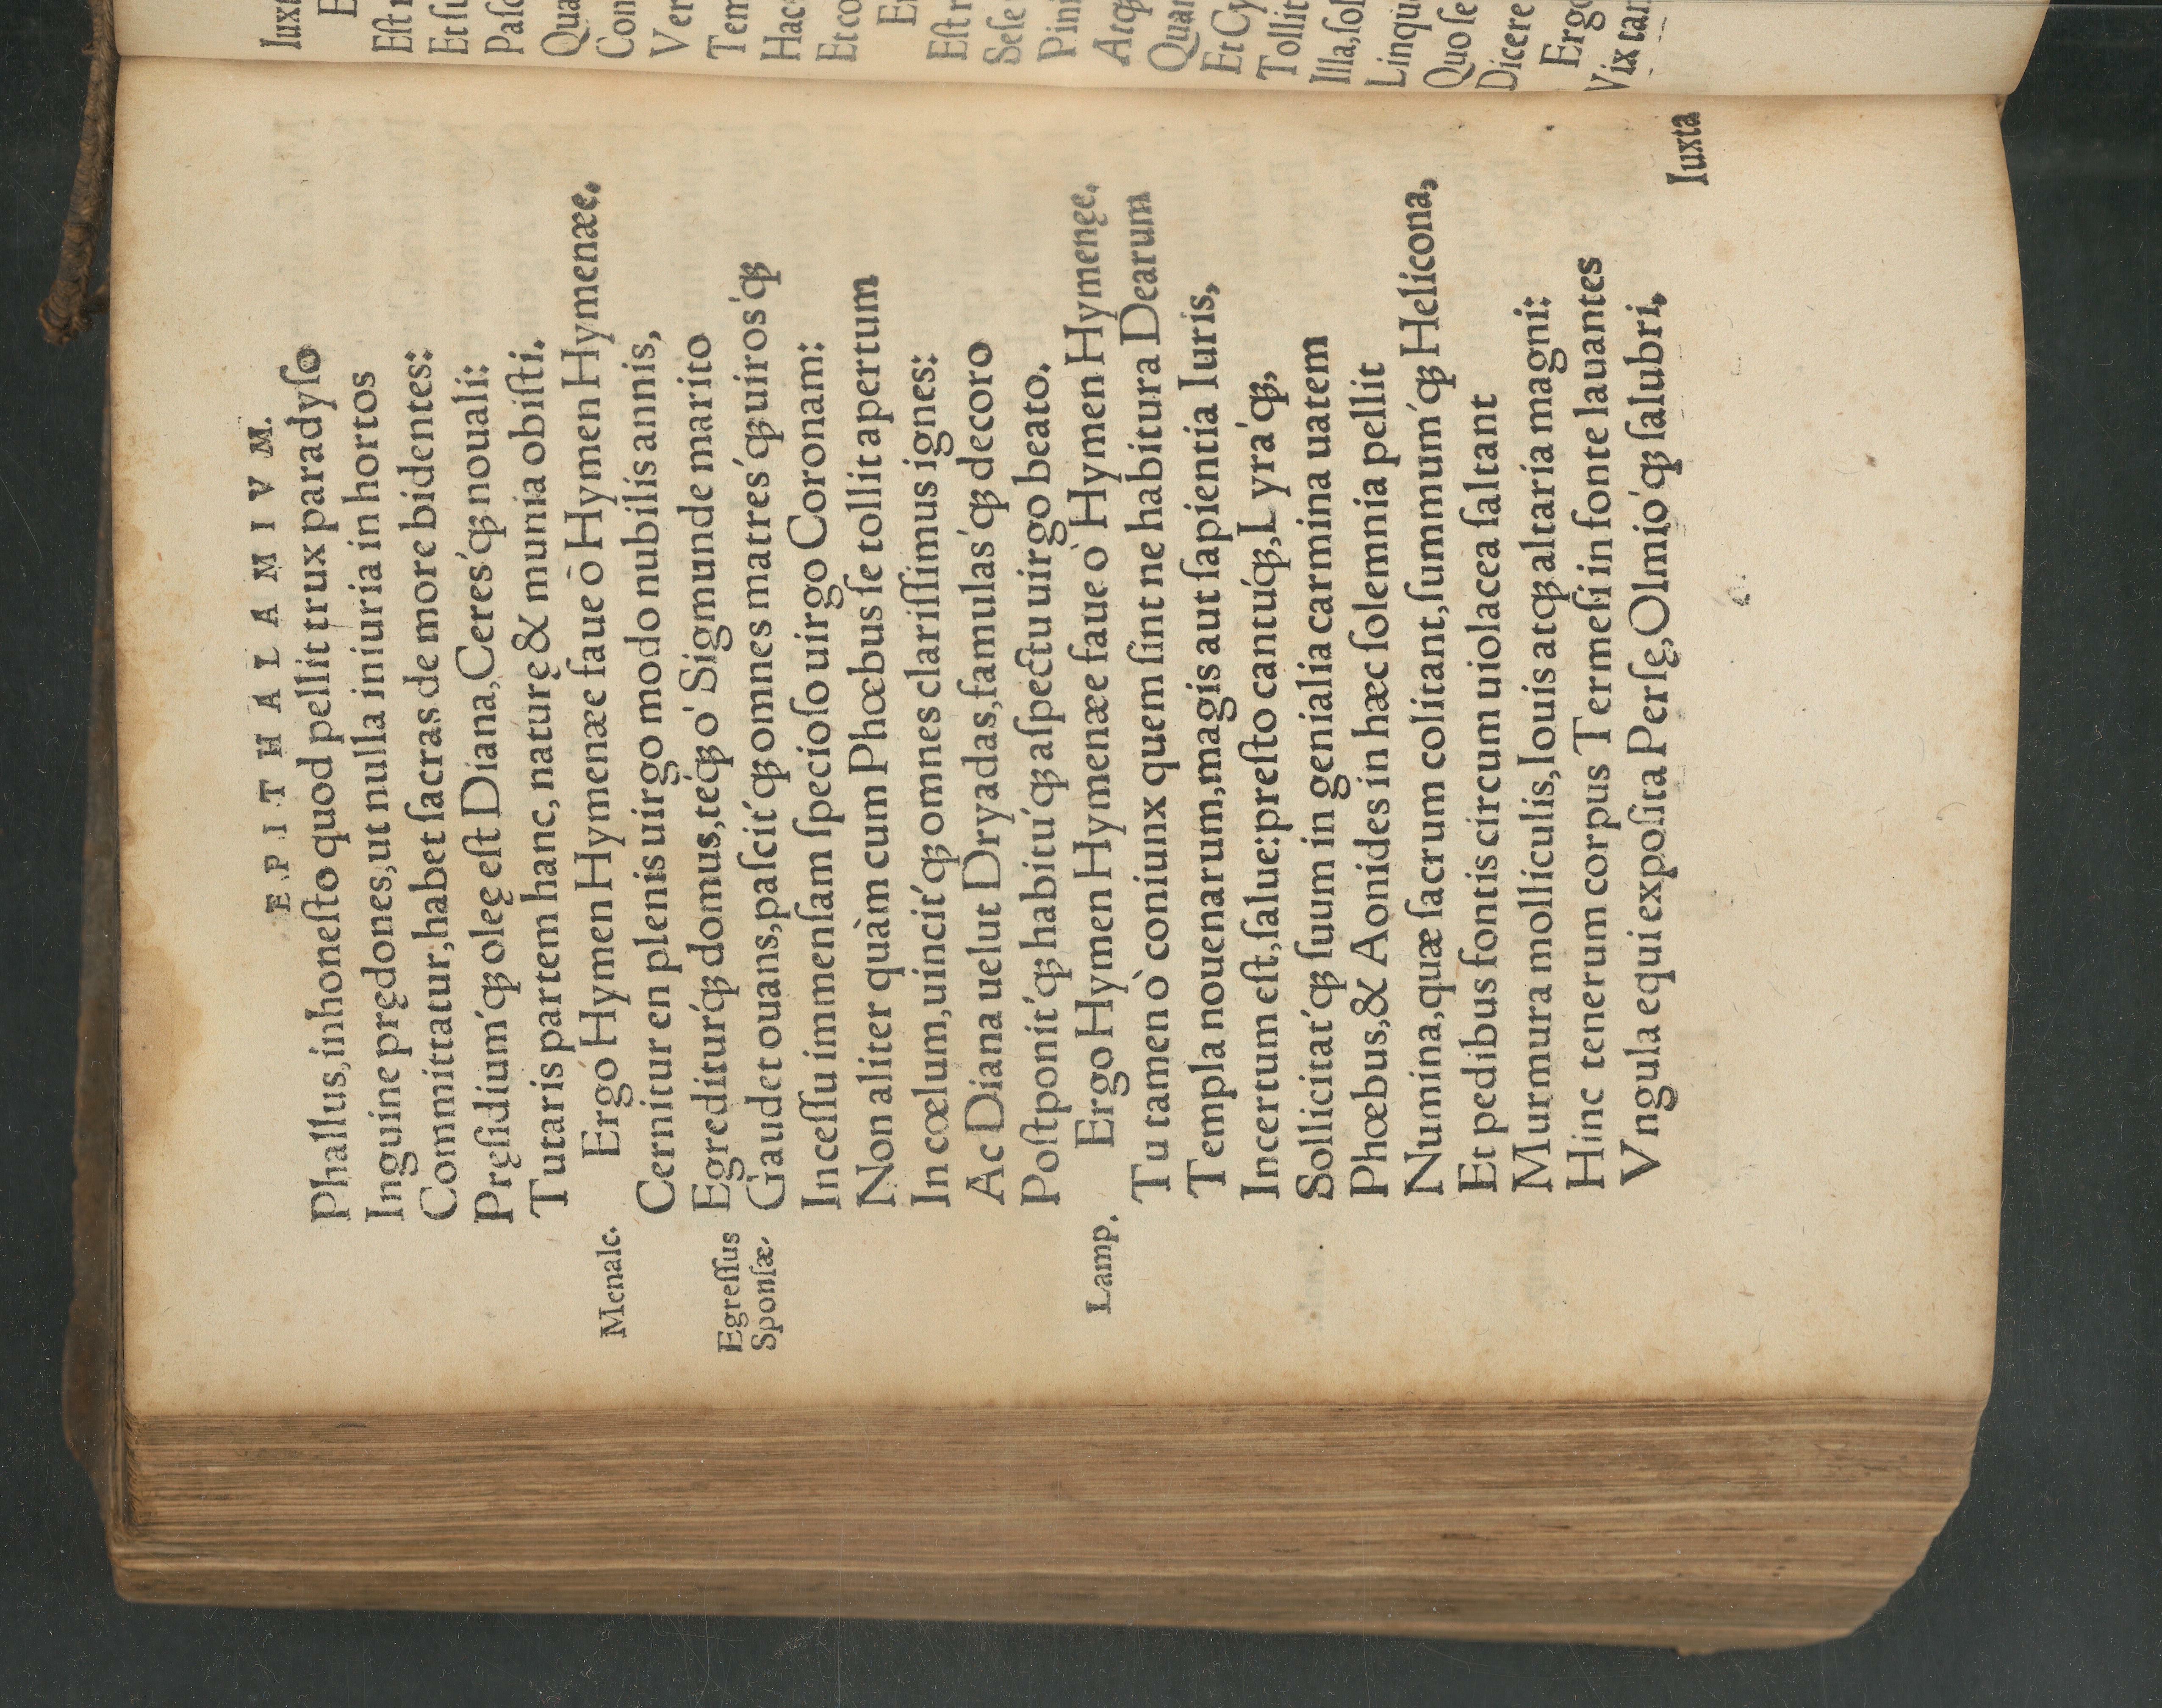 EPITHALAMIVM.
Phallus, inhoneſto quod pellit trux paradyſo
Inguine prędones, ut nulla iniuria in hortos
Committatur, habet ſacras de more bidentes:
Pręſidium´qꝫ oleę eſt Diana, Ceres´qꝫ nouali:
Tutaris partem hanc, naturę & munia obiſti.
Menalc. Ergó Hymen Hymenæe faue ō Hymen Hymenæe.
Cernitur en plenis uirgo modo nubilis annis,
Egressus Egreditur´qꝫ domus, té´qꝫ o´ Sigmunde marito
Sponſæ. Gaudet ouans, paſcit´qꝫ omnes matres´qꝫ uiros´qꝫ
Inceſſu immenſam ſpecioſo uirgo Coronam:
Non aliter quàm cum Phœbus ſe tollit apertum
In cœlum, uincit´qꝫ omnes clariſſimus ignes:
Ac Diana uelut Dryadas, famulas´qꝫ decoro
Poſtponit´qꝫ habitu´qꝫ aſpectu uirgo beato.
Lamp. Ergo Hymen Hymenæe faue ò Hymen Hymenęe.
Tu tamen ò coniunx quem ſint ne habitura Dearum
Templa nouenarum, magis aut ſapientia Iuris,
Incertum eſt, ſalue: preſto cantú´qꝫ, Lyra´qꝫ,
Sollicitat´qꝫ ſuum in genialia carmina uatem
Phœbus, & Aonides in hæc ſolemnia pellit
Numina, quæ ſacrum colitant, ſummum´qꝫ Helicona,
Et pedibus fontis circum uiolacea ſaltant
Murmura molliculis, Iouis atqꝫ altaria magni:
Hinc tenerum corpus Termeſi in fonte lauantes
Vngula equi expoſita Perſę, Olmio´qꝫ ſalubri,
Iuxta
Eſt
Paſc
Qua
Con
Ver
Tem
Et co
Seſe
Pini
Atqꝫ
Quar
Et Cy
Tollit
Illa, ſol
Linqu
Quo ſe
Dicere
Ergo
Vix tan